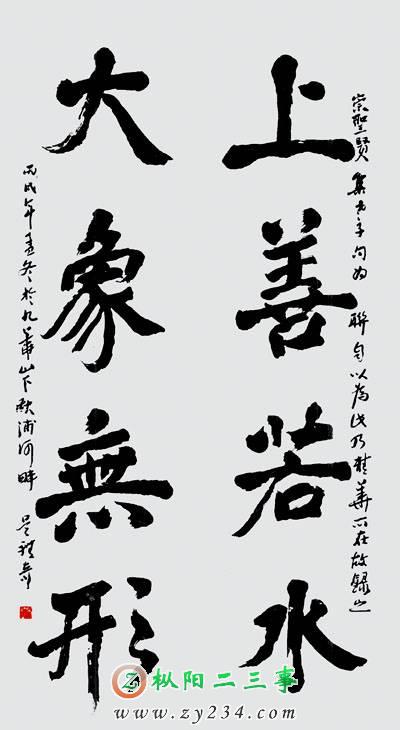 崇聖賢集老子句为聯自以為此乃精華所在故録之
上善若水
大象無形
丙戌年孟冬於九華山下秋浦河畔
枞阳二三事
www.zy234.com